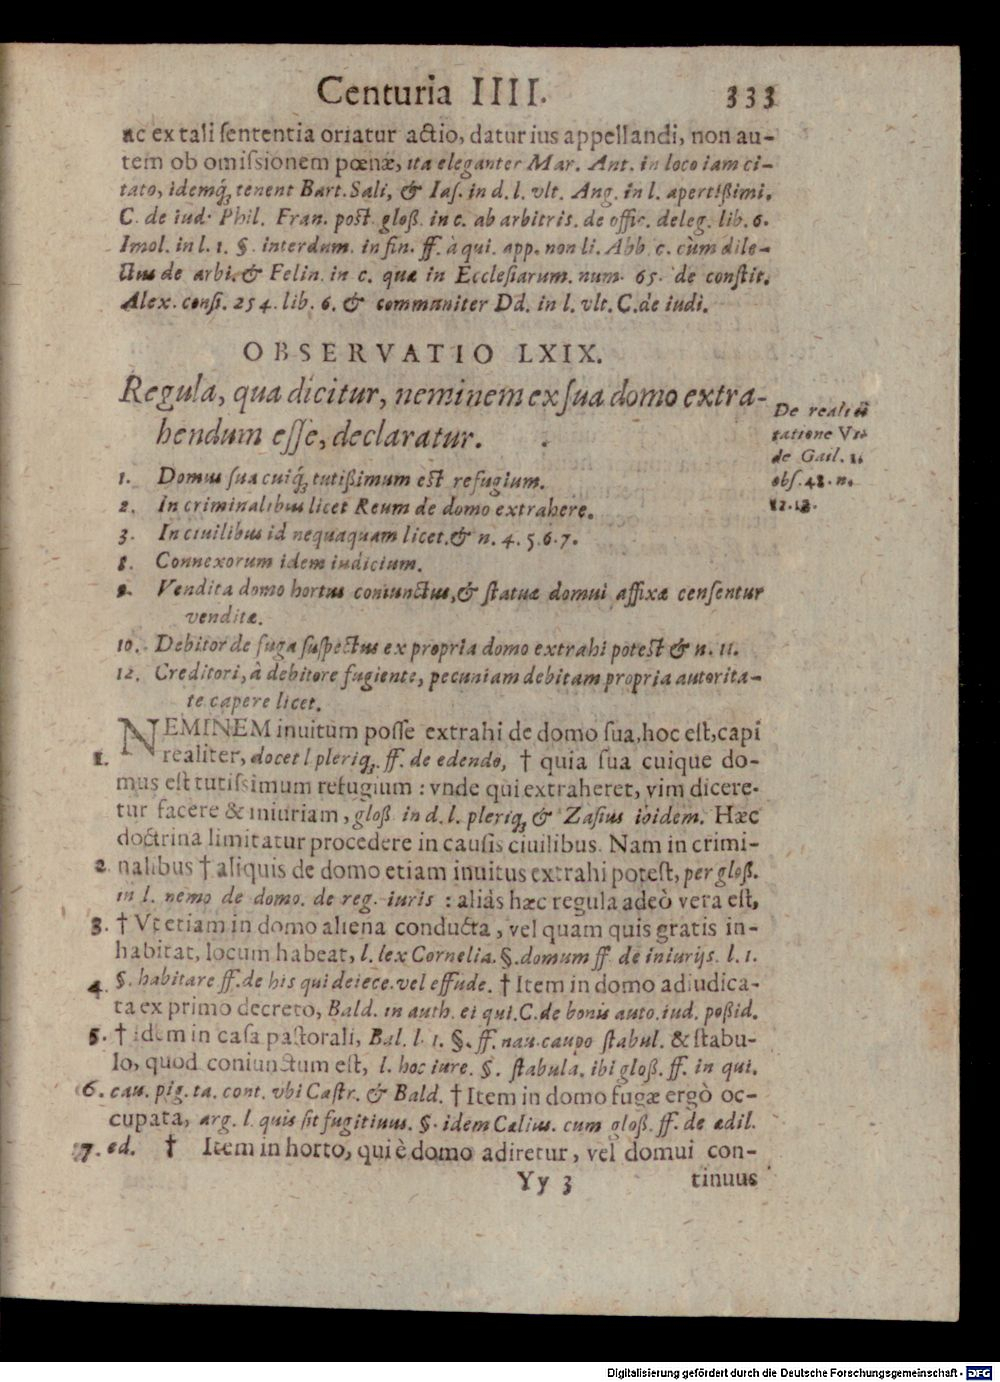 Centuria IIII. 333
ac ex tali ſententia oriatur actio, datur ius appellandi, non au-
tem ob omiſsionem pœnæ, ita eleganter Mar. Ant. in loco iam ci-
tato, idemq́; tenent Bart. Sali, & Iaſ. in d. l. vlt. Ang. in l. apertißimi.
C. de iud. Phil. Fran. poſt gloß. in c. ab arbitris. de offic. deleg. lib. 6.
Imol. in l. 1. §. interdum. in fin. ff. à qui. app. non li. Abb c. cùm dile-
ctus de arbi. & Felin. in c. quæ in Eccleſiarum. num. 65. de conſtit.
Alex. conſi. 254. lib. 6. & communiter Dd. in l. vlt. C. de iudi.
OBSERVATIO LXIX.
Regula, qua dicitur, neminem ex ſua domo extra-
hendum eſſe, declaratur.
De reali ci
tatione Vi-
de Gail. 1.
obſ. 48. n.
12. 13.
1. Domus ſua cuiq́; tutißimum eſt refugium.
2. In criminalibus licet Reum de domo extrahere.
3. In ciuilibus id nequaquam licet. & n. 4. 5. 6. 7.
8. Connexorum idem iudicium.
9. Vendita domo hortus coniunctus, & ſtatuæ domui affixæ cenſentur
venditæ.
10. Debitor de fuga ſuſpectus ex propria domo extrahi poteſt & n. 11.
12. Creditori, à debitore fugiente, pecuniam debitam propria autorita-
te capere licet.
NEMINEM inuitum poſſe extrahi de domo ſua, hoc eſt, capi
1. realiter, docet l pleriq;. ff. de edendo, † quia ſua cuique do-
mus eſt tutiſsimum refugium : vnde qui extraheret, vim dicere-
tur facere & iniuriam, gloß in d. l. pleriq; & Zaſius ibidem. Hæc
doctrina limitatur procedere in cauſis ciuilibus. Nam in crimi-
2. nalibus † aliquis de domo etiam inuitus extrahi poteſt, per gloß.
in l. nemo de domo. de reg. iuris : aliàs hæc regula adeò vera eſt,
3. † Vt etiam in domo aliena conducta, vel quam quis gratis in-
habitat, locum habeat, l. lex Cornelia. §. domum ff de iniurijs. l. 1.
4. §. habitare ff. de his qui deiece. vel effude. † Item in domo adiudica-
ta ex primo decreto, Bald. in auth. ei qui. C. de bonis auto. iud. poßid.
5. † idem in caſa paſtorali, Bal. l. 1. §. ff. nau. caupo ſtabul. & ſtabu-
lo, quod coniunctum eſt, l. hoc iure. §. ſtabula. ibi gloß. ff. in qui.
6. cau. pig. ta. cont. vbi Caſtr. & Bald. † Item in domo fugæ ergò oc-
cupata, arg. l. quis ſit fugitiuus. §. idem Cælius. cum gloß. ff. de ædil.
7. ed. † Item in horto, qui è domo adiretur, vel domui con-
Yy 3 tinuus
Digitalisierung gefördert durch die Deutsche Forschungsgemeinschaft - DFG